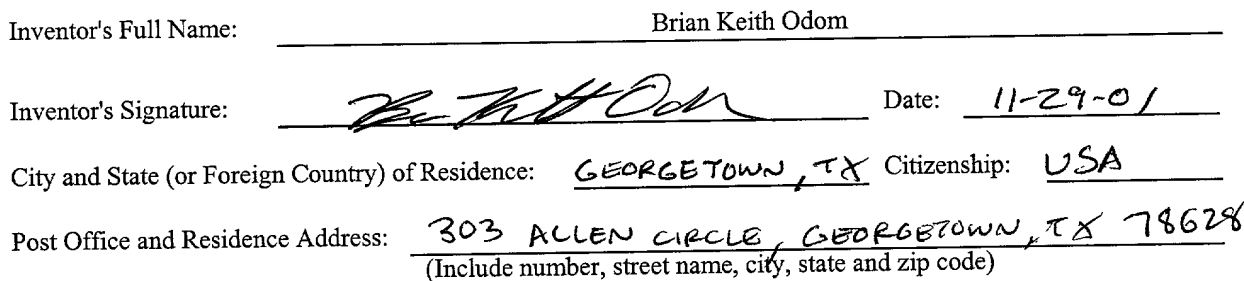 Inventor's Full Name: Brian Keith Odom
Inventor's Signature: Brian Keith Odom Date: 11-29-01
City and State (or Foreign Country) of Residence: GEORGETOWN, TX Citizenship: USA
Post Office and Residence Address: 303 ALLEN CIRCLE, GEORGETOWN, TX 78628
(Include number, street name, city, state and zip code)